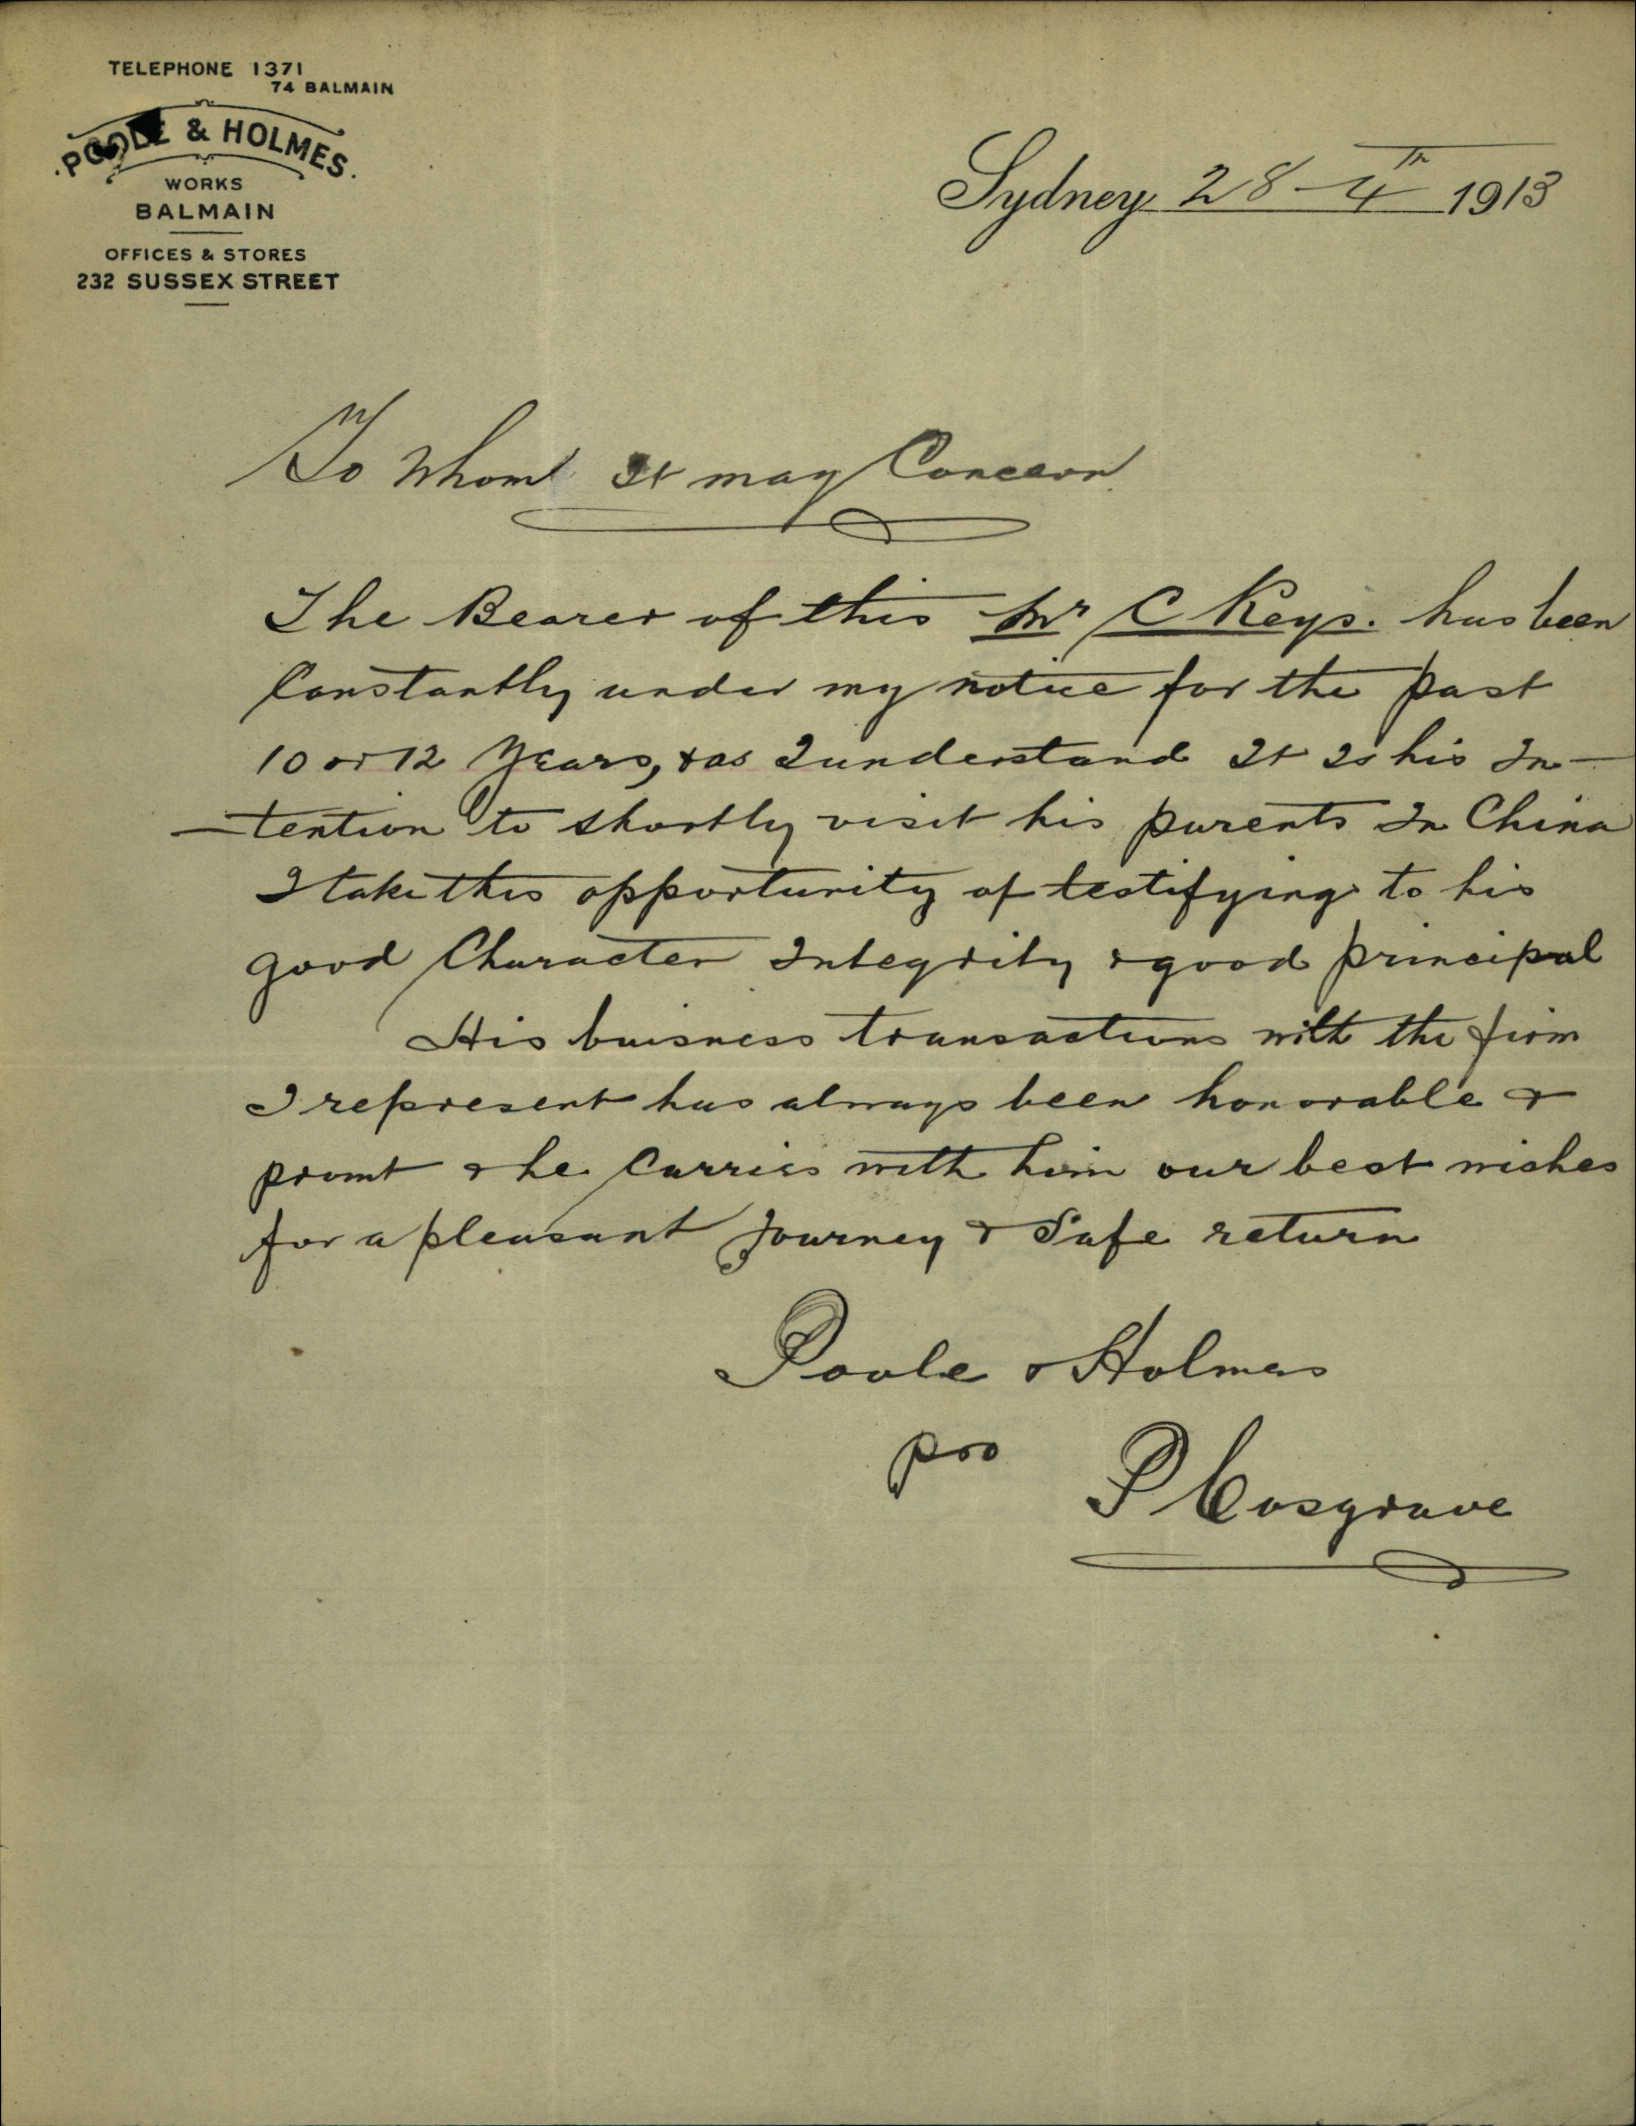 TELEPHONE 1371
74 BALMAIN
POOLE & HOLMES.
WORKS
BALMAIN
OFFICES & STORES
232 SUSSEX STREET
Sydney 28-4th 1913
To Whom It may Concern
The Bearer of this Mr C Keys. has been
Constantly under my notice for the past
10 or 12 Years, & as I understand It Is his In-
-tention to shortly visit his parents In China
I take this opportunity of testifying to his
good Character Integrity & good principal
His buisness transactions with the firm
I represent has always been honorable &
promt & he Carries with him our best wishes
for a pleasant Journey & Safe return
Poole & Holmes
pro
P Cosgrave